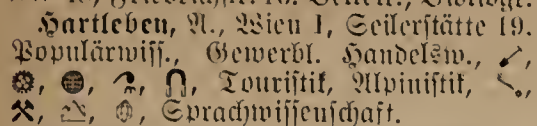 Hartleben, A., Wien I, Seilerstätte 19.
Populärwiss., Gewerbl. Handelsw.,
Touristik, Alpinistik,
Sprachwissenschaft.